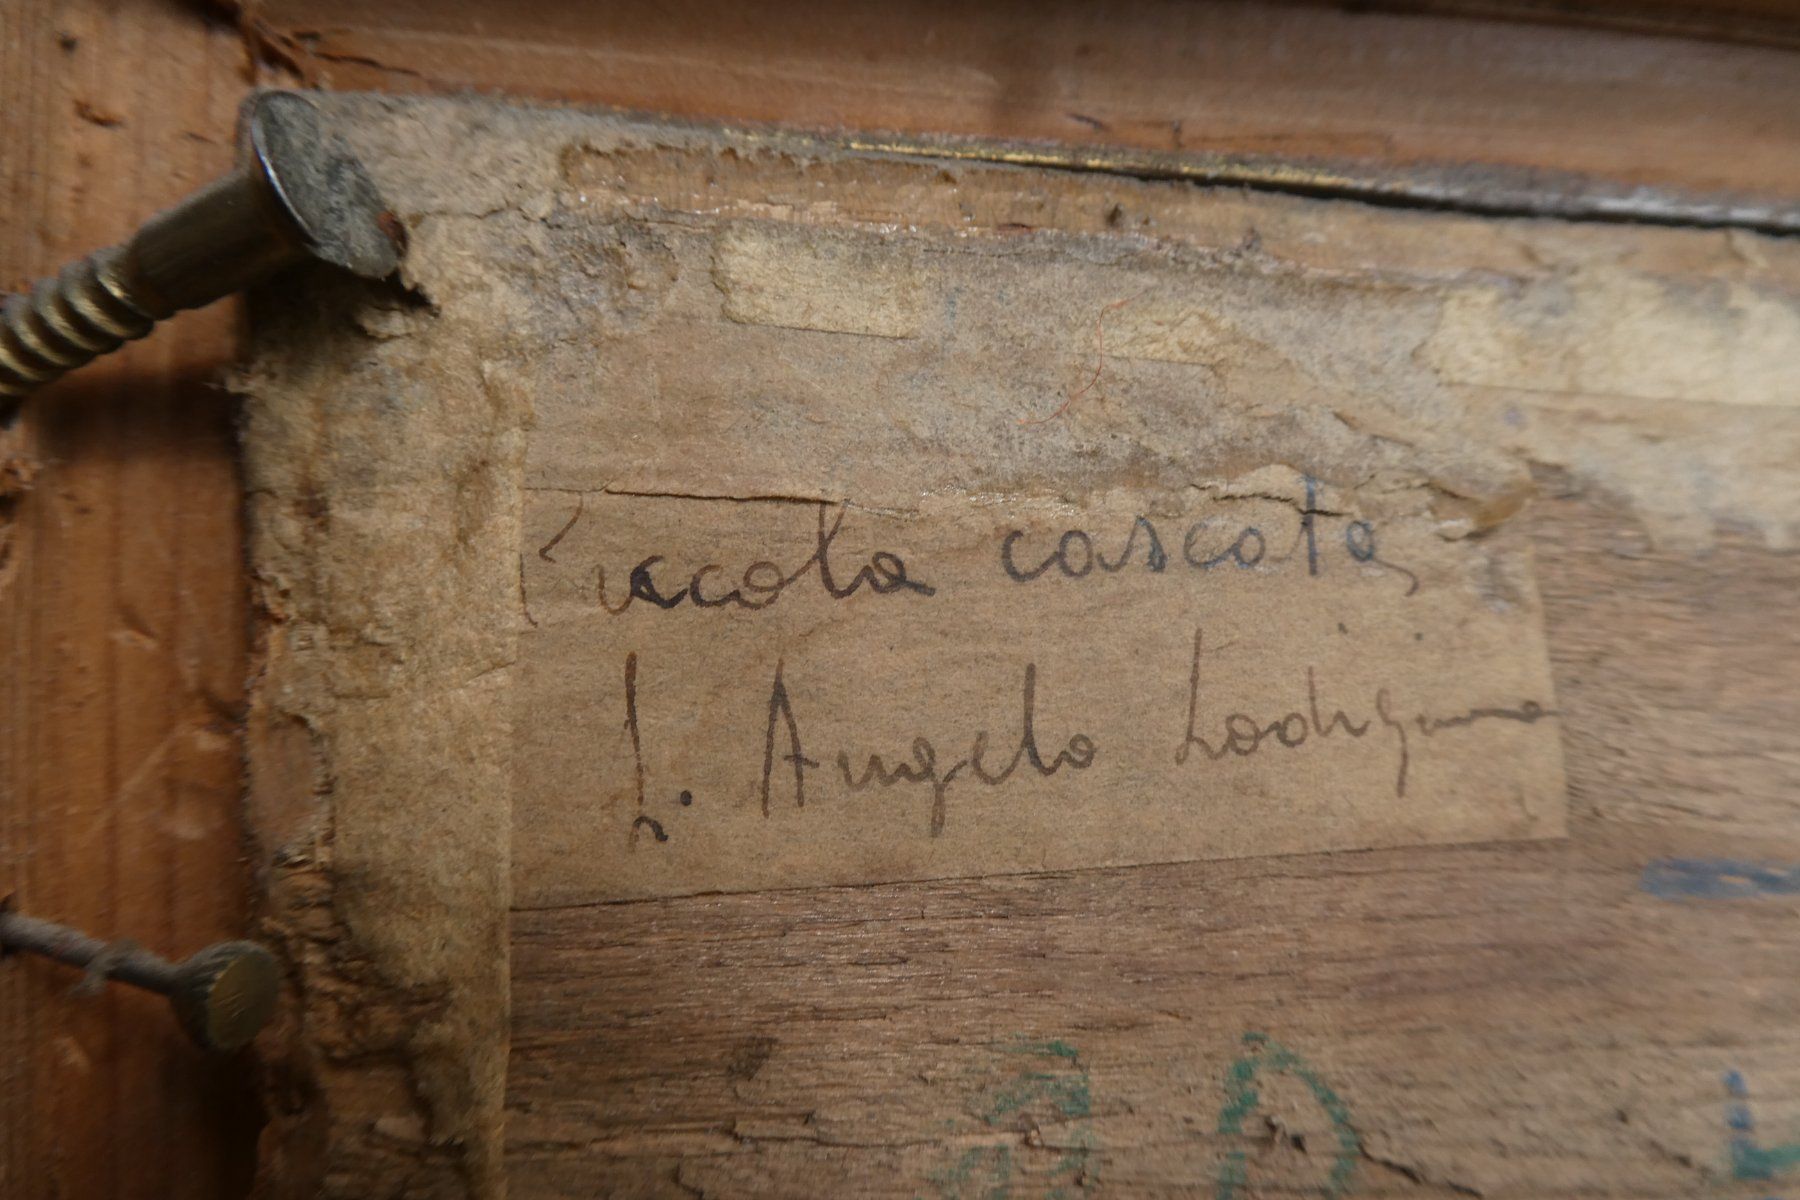 Piccola cascata
S. Angelo Lodigiano